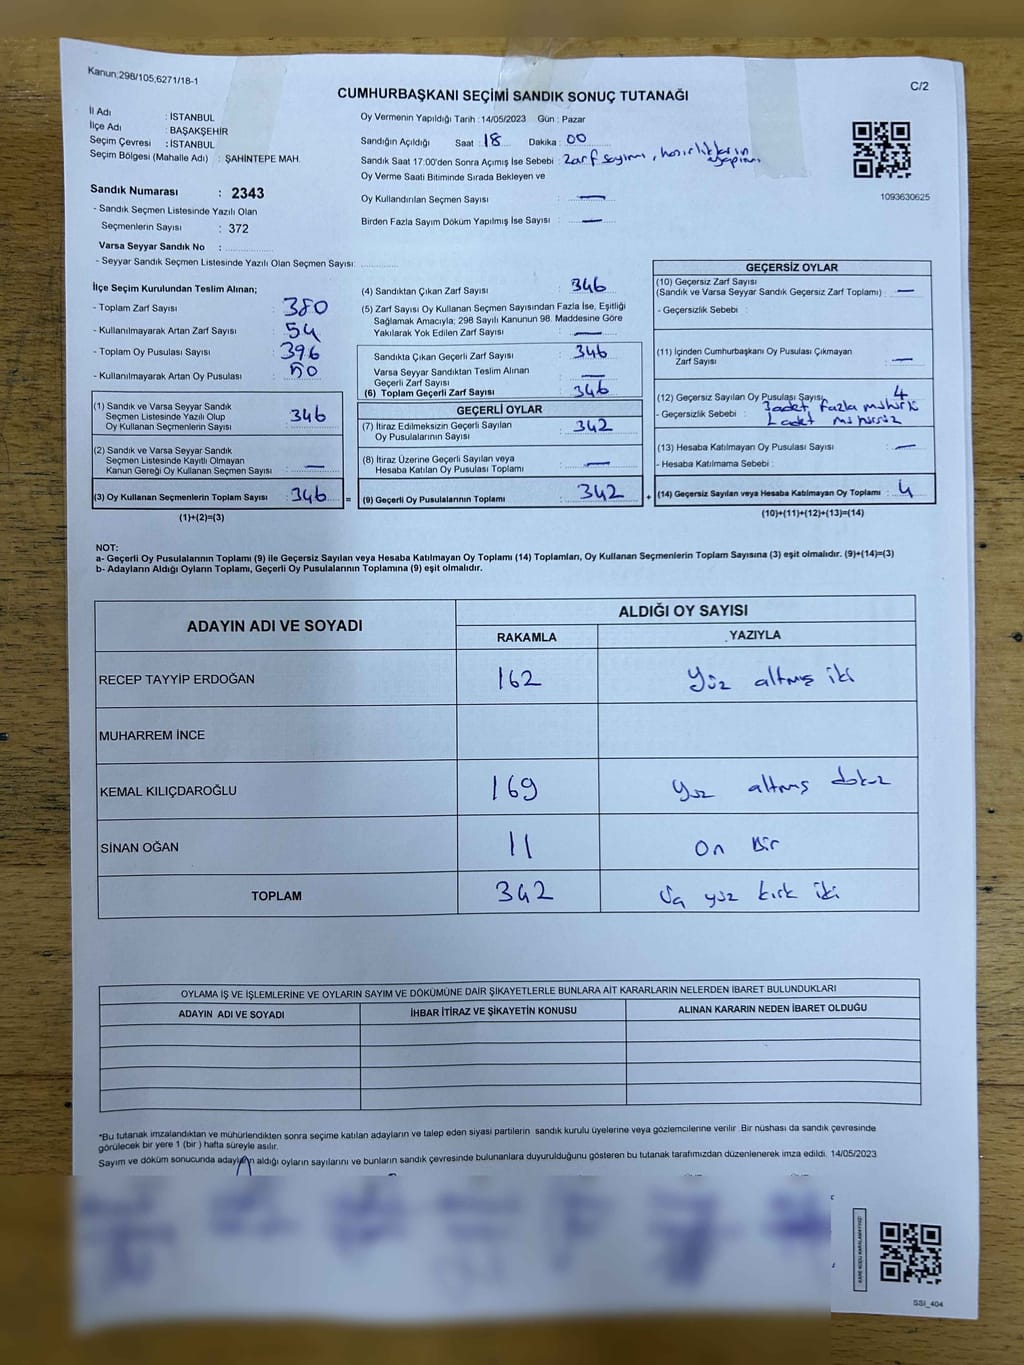 Kanun:298/105,6271/18-1
C/2
CUMHURBAŞKANI SEÇİMİ SANDIK SONUÇ TUTANAĞI
İl Adı : İSTANBUL
İlçe Adı : BAŞAKŞEHİR
Seçim Çevresi : İSTANBUL
Seçim Bölgesi (Mahalle Adı) : ŞAHİNTEPE MAH.
Oy Vermenin Yapıldığı Tarih :14/05/2023 Gün : Pazar
Sandığın Açıldığı Saat : 18 Dakika : 00
Sandık Saat 17:00'den Sonra Açımış İse Sebebi : Zarf sayımı, hazırlıkların yapımı
Oy Verme Saati Bitiminde Sırada Bekleyen ve
Oy Kullandırılan Seçmen Sayısı : —
Birden Fazla Sayım Döküm Yapılmış İse Sayısı : —
1093630625
Sandık Numarası : 2343
- Sandık Seçmen Listesinde Yazılı Olan
Seçmenlerin Sayısı : 372
Varsa Seyyar Sandık No :
- Seyyar Sandık Seçmen Listesinde Yazılı Olan Seçmen Sayısı:
İlçe Seçim Kurulundan Teslim Alınan;
- Toplam Zarf Sayısı : 380
- Kullanılmayarak Artan Zarf Sayısı : 54
- Toplam Oy Pusulası Sayısı : 396
- Kullanılmayarak Artan Oy Pusulası : 50
(1) Sandık ve Varsa Seyyar Sandık
Seçmen Listesinde Yazılı Olup
Oy Kullanan Seçmenlerin Sayısı : 346
(2) Sandık ve Varsa Seyyar Sandık
Seçmen Listesinde Kayıtlı Olmayan
Kanun Gereği Oy Kullanan Seçmen Sayısı : —
(3) Oy Kullanan Seçmenlerin Toplam Sayısı : 346 =
(1)+(2)=(3)
(4) Sandıktan Çıkan Zarf Sayısı : 346
(5) Zarf Sayısı Oy Kullanan Seçmen Sayısından Fazla İse, Eşitliği
Sağlamak Amacıyla; 298 Sayılı Kanunun 98. Maddesine Göre
Yakılarak Yok Edilen Zarf Sayısı : —
Sandıkta Çıkan Geçerli Zarf Sayısı : 346
Varsa Seyyar Sandıktan Teslim Alınan
Geçerli Zarf Sayısı : —
(6) Toplam Geçerli Zarf Sayısı : 346
GEÇERLİ OYLAR
(7) İtiraz Edilmeksizin Geçerli Sayılan
Oy Pusulalarının Sayısı : 342
(8) İtiraz Üzerine Geçerli Sayılan veya
Hesaba Katılan Oy Pusulası Toplamı : —
(9) Geçerli Oy Pusulalarının Toplamı : 342 +
GEÇERSİZ OYLAR
(10) Geçersiz Zarf Sayısı
(Sandık ve Varsa Seyyar Sandık Geçersiz Zarf Toplamı) : —
- Geçersizlik Sebebi :
(11) İçinden Cumhurbaşkanı Oy Pusulası Çıkmayan
Zarf Sayısı : —
(12) Geçersiz Sayılan Oy Pusulası Sayısı : 4
3 adet fazla mühür
- Geçersizlik Sebebi : 1 adet mühürsüz
(13) Hesaba Katılmayan Oy Pusulası Sayısı : —
- Hesaba Katılmama Sebebi :
(14) Geçersiz Sayılan veya Hesaba Katılmayan Oy Toplamı : 4
(10)+(11)+(12)+(13)=(14)
NOT:
a- Geçerli Oy Pusulalarının Toplamı (9) ile Geçersiz Sayılan veya Hesaba Katılmayan Oy Toplamı (14) Toplamları, Oy Kullanan Seçmenlerin Toplam Sayısına (3) eşit olmalıdır. (9)+(14)=(3)
b- Adayların Aldığı Oyların Toplamı, Geçerli Oy Pusulalarının Toplamına (9) eşit olmalıdır.
ADAYIN ADI VE SOYADI
ALDIĞI OY SAYISI
RAKAMLA YAZIYLA
RECEP TAYYİP ERDOĞAN 162 Yüz altmış iki
MUHARREM İNCE
KEMAL KILIÇDAROĞLU 169 Yüz altmış dokuz
SİNAN OĞAN 11 On Bir
TOPLAM 342 Üç yüz kırk iki
OYLAMA İŞ VE İŞLEMLERİNE VE OYLARIN SAYIM VE DÖKÜMÜNE DAİR ŞİKAYETLERLE BUNLARA AİT KARARLARIN NELERDEN İBARET BULUNDUKLARI
ADAYIN ADI VE SOYADI İHBAR İTİRAZ VE ŞİKAYETİN KONUSU ALINAN KARARIN NEDEN İBARET OLDUĞU
*Bu tutanak imzalandıktan ve mühürlendikten sonra seçime katılan adayların ve talep eden siyasi partilerin sandık kurulu üyelerine veya gözlemcilerine verilir .Bir nüshası da sandık çevresinde
görülecek bir yere 1 (bir ) hafta süreyle asılır.
Sayım ve döküm sonucunda adayların aldığı oyların sayılarını ve bunların sandık çevresinde bulunanlara duyurulduğunu gösteren bu tutanak tarafımızdan düzenlenerek imza edildi. 14/05/2023
KARE KODU KARALAMAYINIZ!
SSI_404